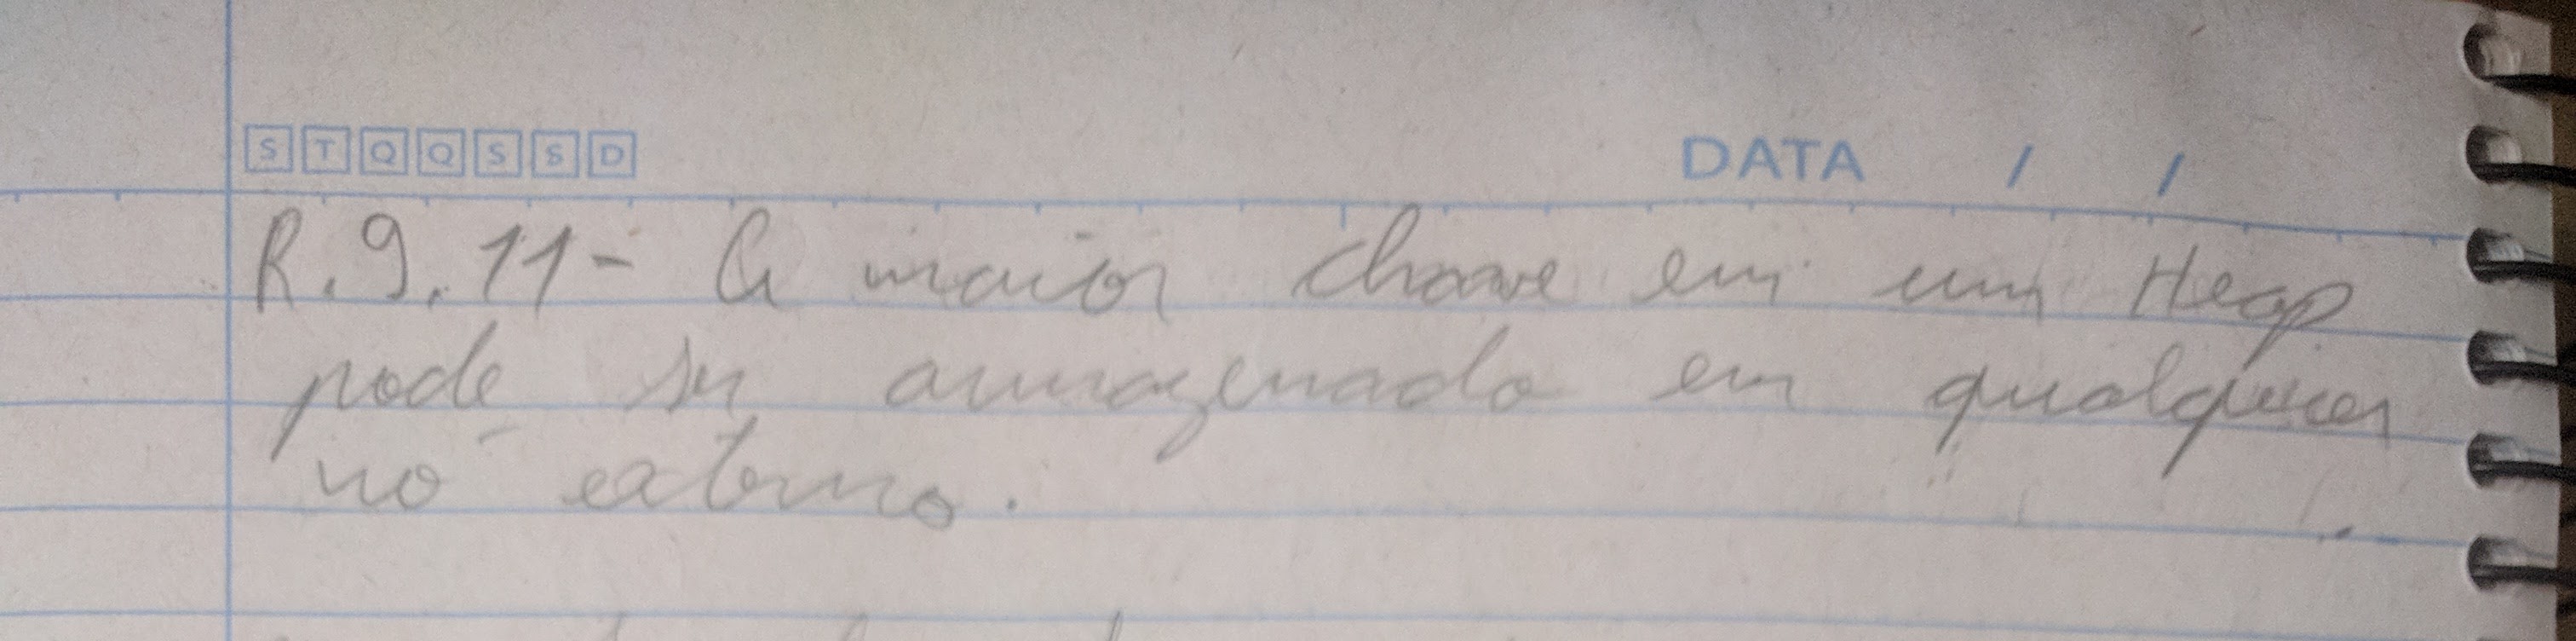 S T Q Q S S D
DATA / /
R.9.11- A maior chave em um Heap
pode ser armazenada em qualquer
nó externo.